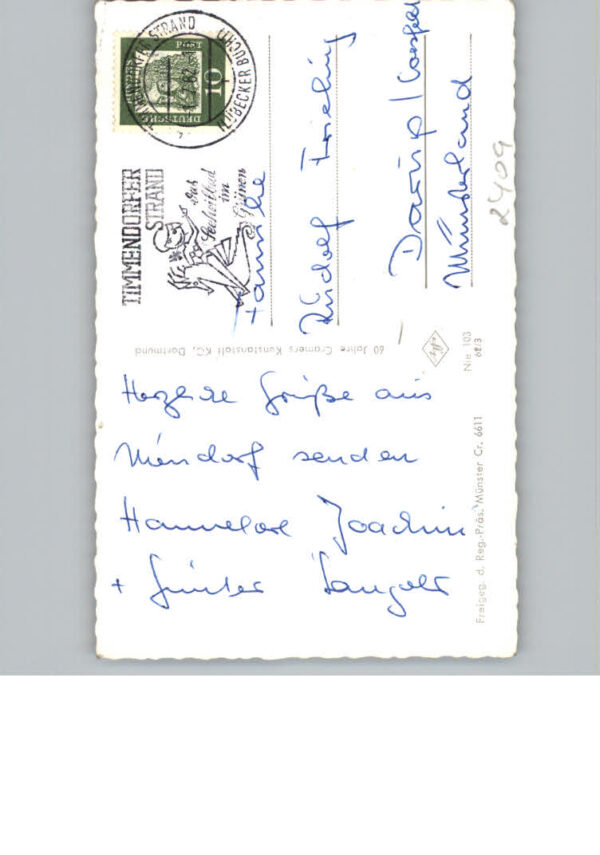 TIMMENDORFER STRAND
(LÜBECKER BUCHT)
DEUTSCHE
POST
10
TIMMENDORFER
STRAND
Das
Seeheilbad
im
Grünen
Familie
Rudolf
Darup / Coesfeld
Münsterland
2409
60 Jahre Cramers Kunstanstalt KG, Dortmund
Nie 103
68/3
Freigeg. d. Reg.-Präs. Münster Cr. 6611
Herzliche Grüße aus
Niendorf senden
Hannelore Joachim
+ Günter